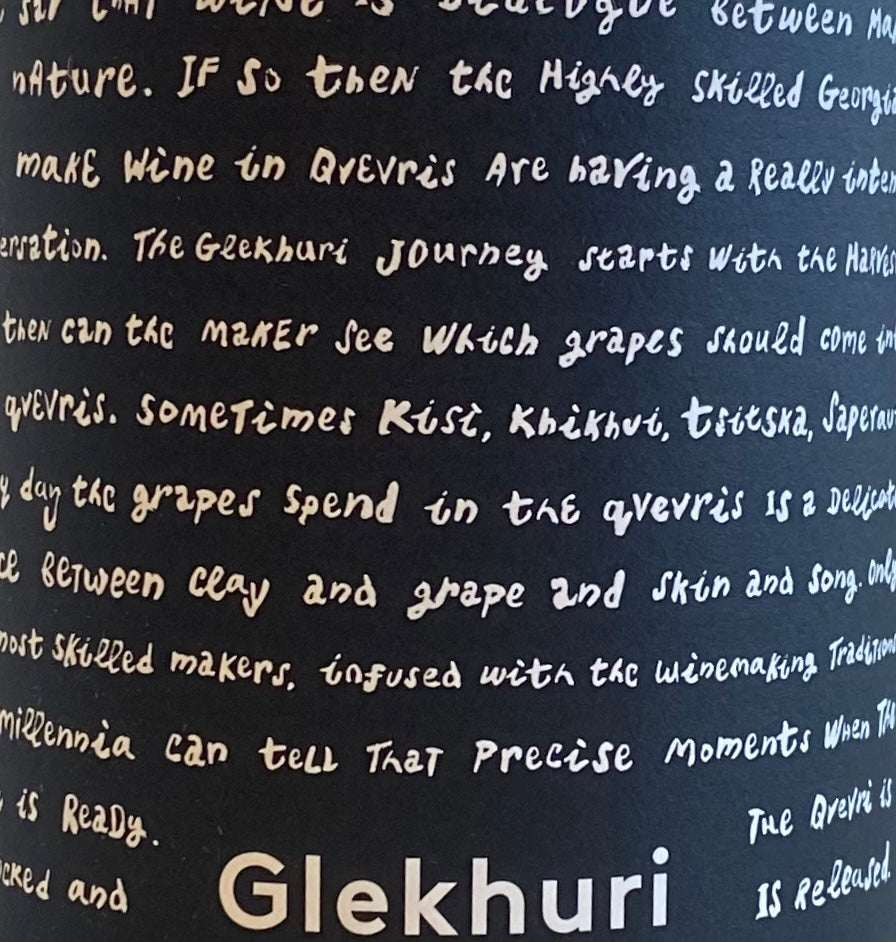 say that wine is dialogue between
nature. IF So then the Highly skilled
make Wine in Qvevris Are having a Really
The Glekhuri Journey starts with the
then can the maker see Which grapes should come
qvevris. Sometimes Kisi, Khikhvi, tsitska,
day the grapes spend in the qvevris is a
Between Clay and grape and Skin and Song. Only
most skilled makers, infused with the winemaking
millennia can tell That Precise Moments When
is Ready. The Qvevri is
and Is Released.
Glekhuri